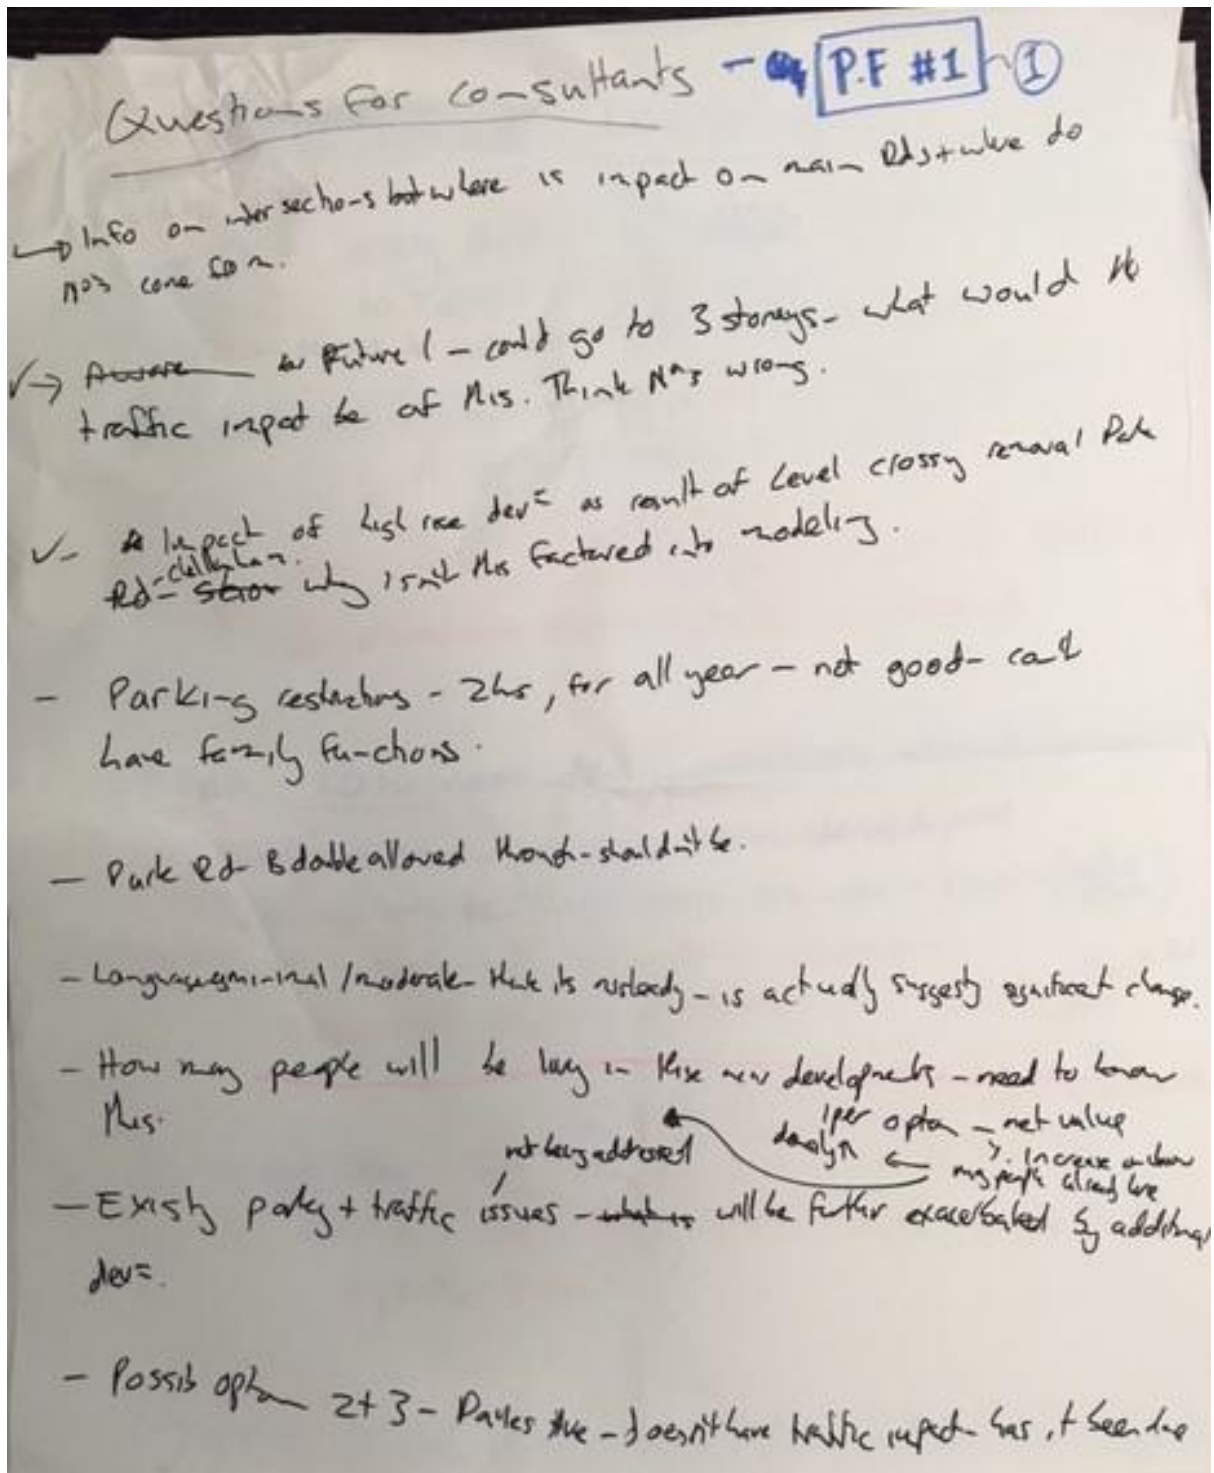 Questions for consultants - P.F #1 - 1
→ Info on intersections but where is impact on main Rds + where do
Nos come from.
✓→ Aware for Future 1 - could go to 3 storeys - what would the
traffic impact be of this. Think Nos wrong.
✓- Impact of high rise dev= as result of Level crossing removal Park
Rd - Cheltenham. why isn't this factored into modeling.
- Parking restrictions - 2hrs, for all year - not good - can't
have family functions.
- Park Rd - B double allowed though - shouldn't be.
- Language minimal / moderate - think its misleading - is actually suggesting significant change.
- How many people will be living in these new developments - need to know
this.
/per option - net value
density ← increase on how
many people already here
not being addressed
- Existing parking + traffic issues - what is will be further exacerbated by additional
dev=.
- Possib option 2 + 3 - - doesn't have traffic impact - has it been done